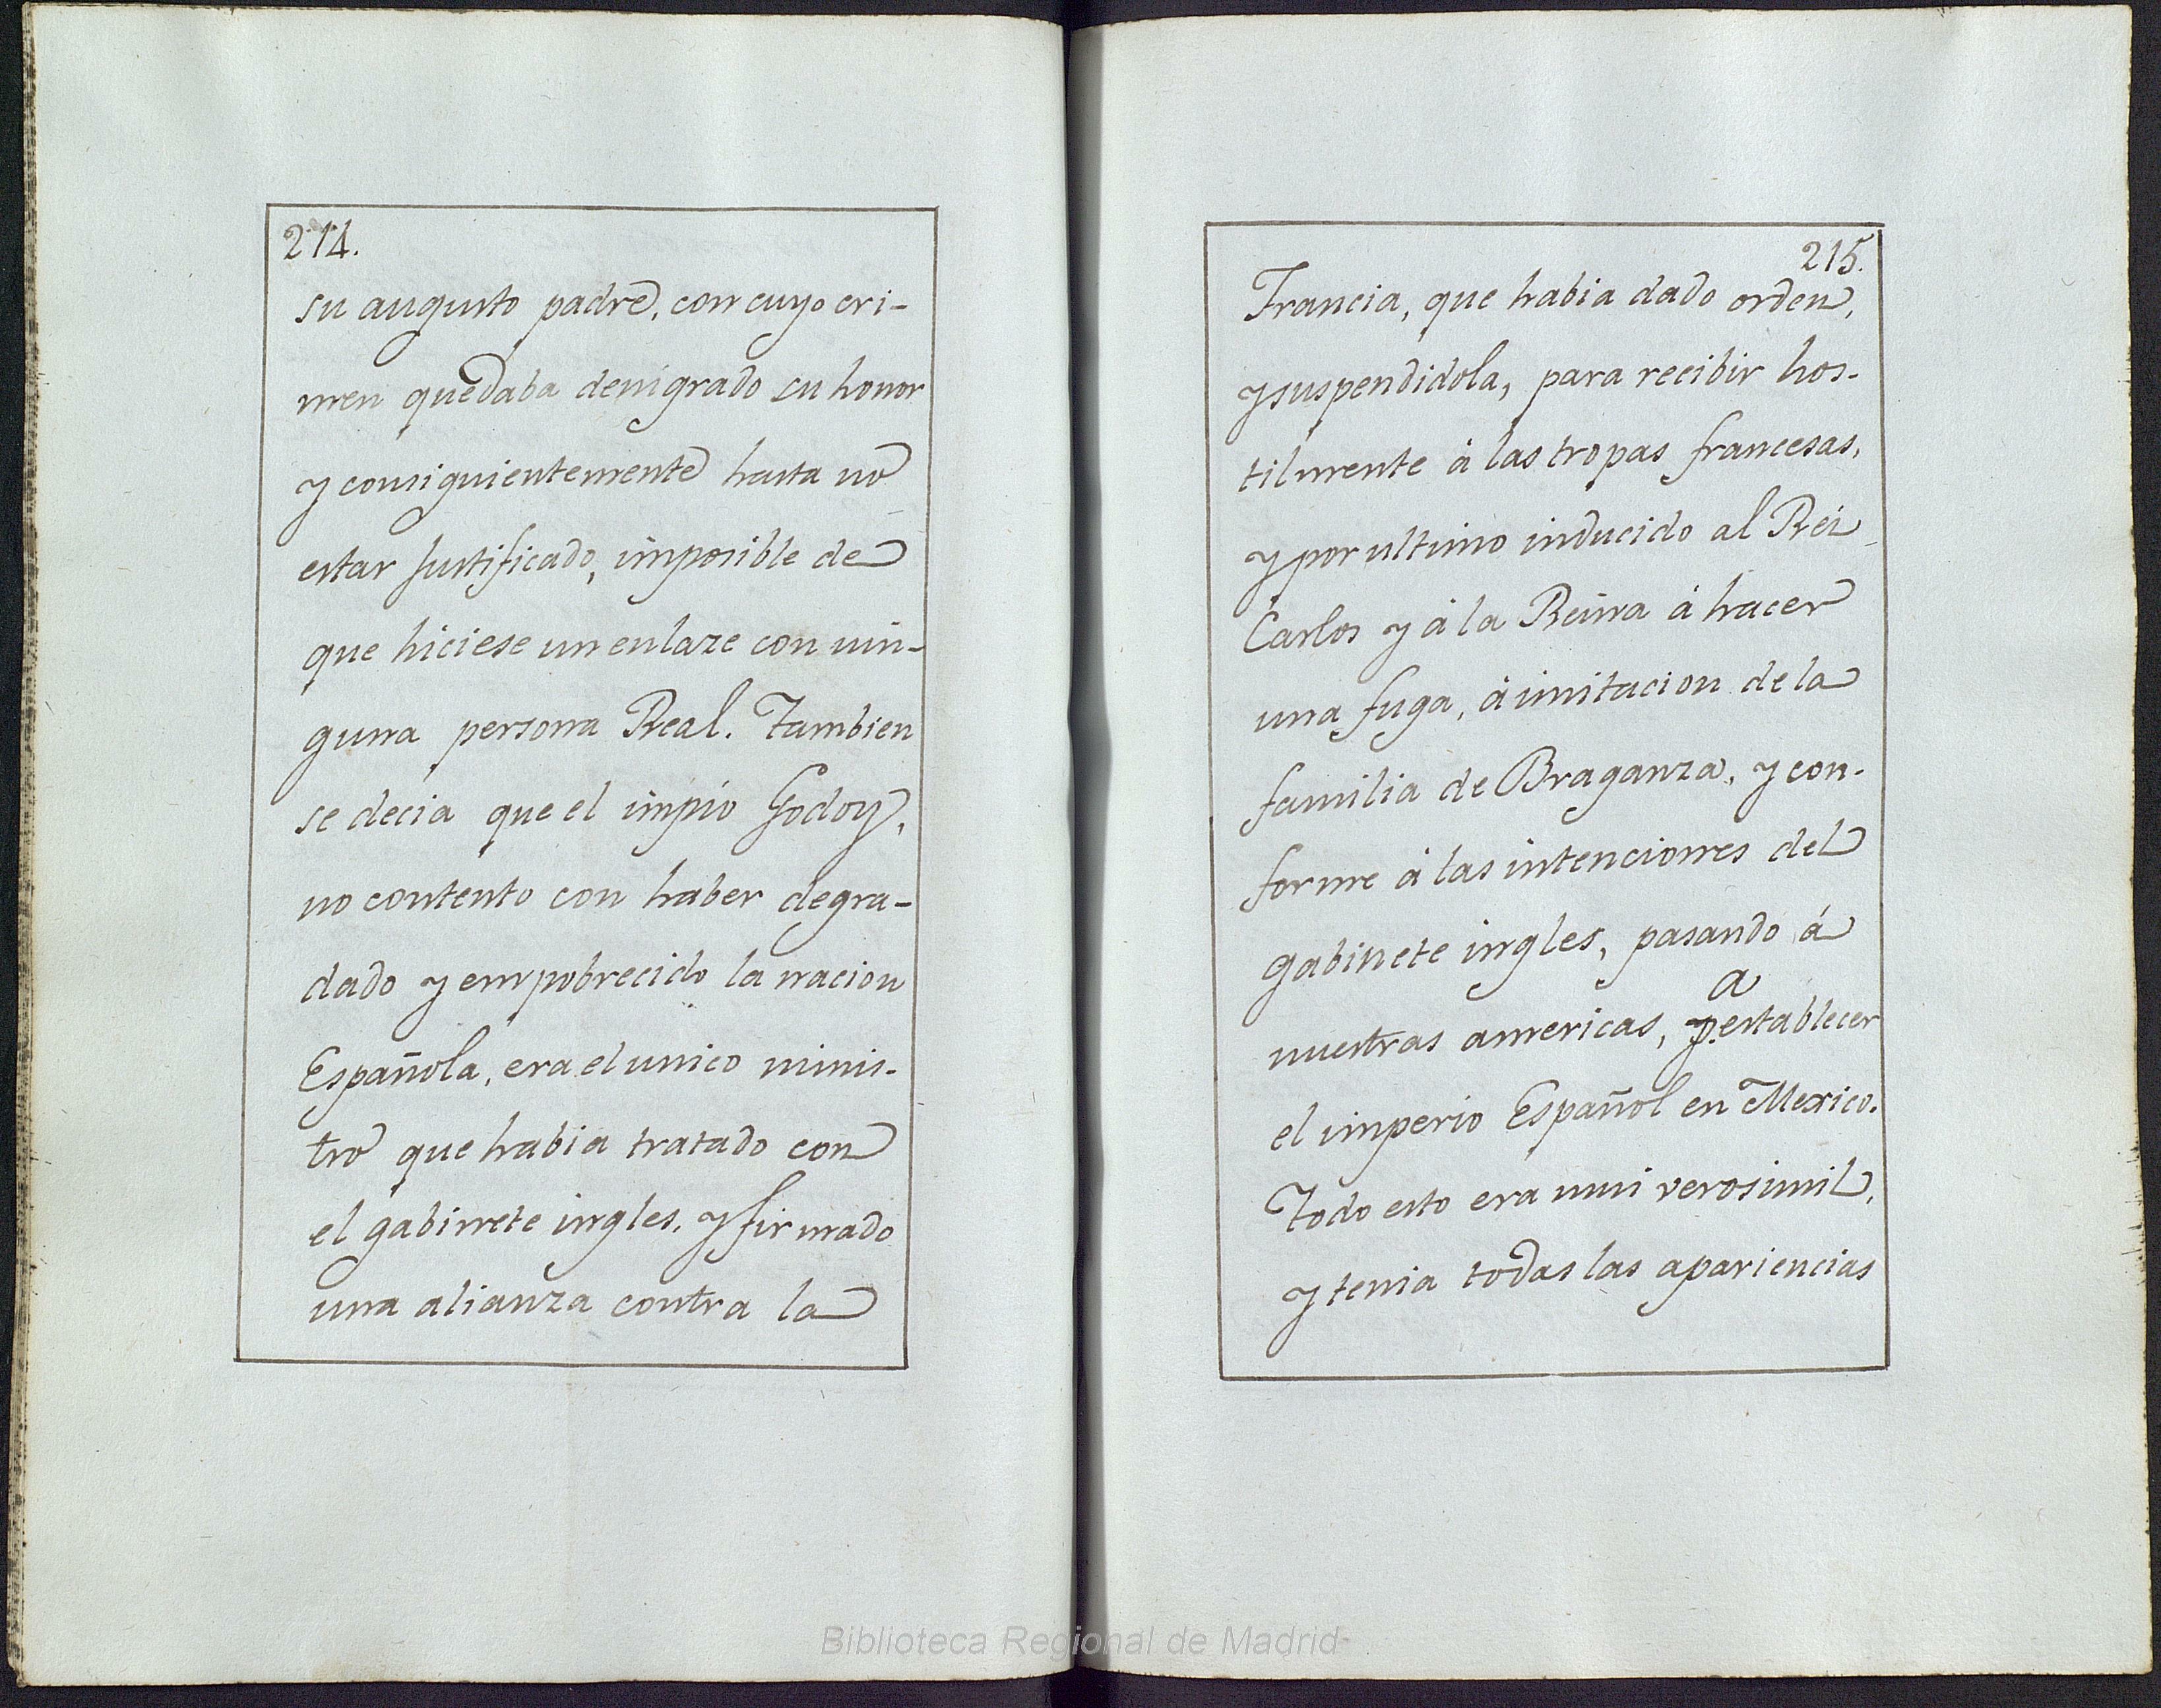 214.
su augusto padre, con cuyo cri-
men quedaba denigrado su honor
y consiguientemente hasta no
estar justificado, imposible de
que hiciese un enlaze con nin-
guna persona Real. Tambien
se decia que el impío Godoy,
no contento con haber degra-
dado y empobrecido la nacion
Española, era el unico minis-
tro que habia tratado con
el gabinete ingles, y firmado
una alianza contra la
215.
Francia, que habia dado orden,
y suspendidola, para recibir hos-
tilmente á las tropas francesas,
y por ultimo inducido al Rei
Carlos y á la Reina á hacer
una fuga, á imitacion de la
familia de Braganza, y con-
forme á las intenciones del
gabinete ingles, pasando á
nuestras americas, pa establecer
el imperio Español en Mexico.
Todo esto era mui verosimil,
y tenia todas las apariencias
Biblioteca Regional de Madrid